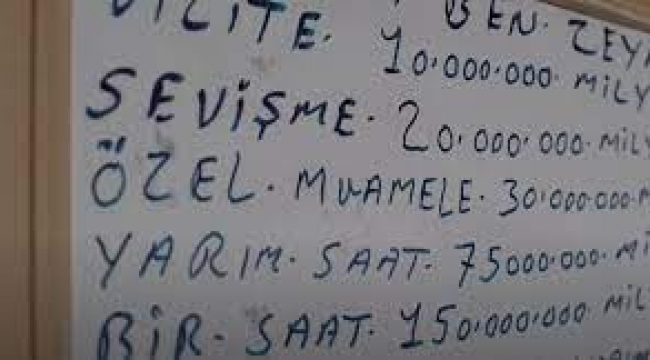 BEN.
VİZİTE. 10.000.000 MİLY
SEVİŞME. 20.000.000. MİLY
ÖZEL. MUAMELE. 30.000.000.M
YARIM. SAAT. 75000.000. Mİ
BİR. SAAT. 150.000.000 MİL